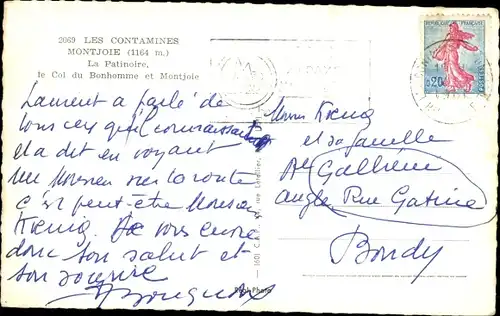 2069 LES CONTAMINES
MONTJOIE (1164 m.)
La Patinoire,
le Col du Bonhomme et Montjoie
REPUBLIQUE FRANÇAISE
0,20
POSTES
Laurent a parlé de
tous ceux qu'il connaissait
et a dit en voyant
un Monsieur sur la route
c'est peut-être Monsieur
Kœnig. Je vous envoie
donc son salut et
son sourire
Kœnig
et sa famille
Galliéni
angle Rue Gatine
Bondy